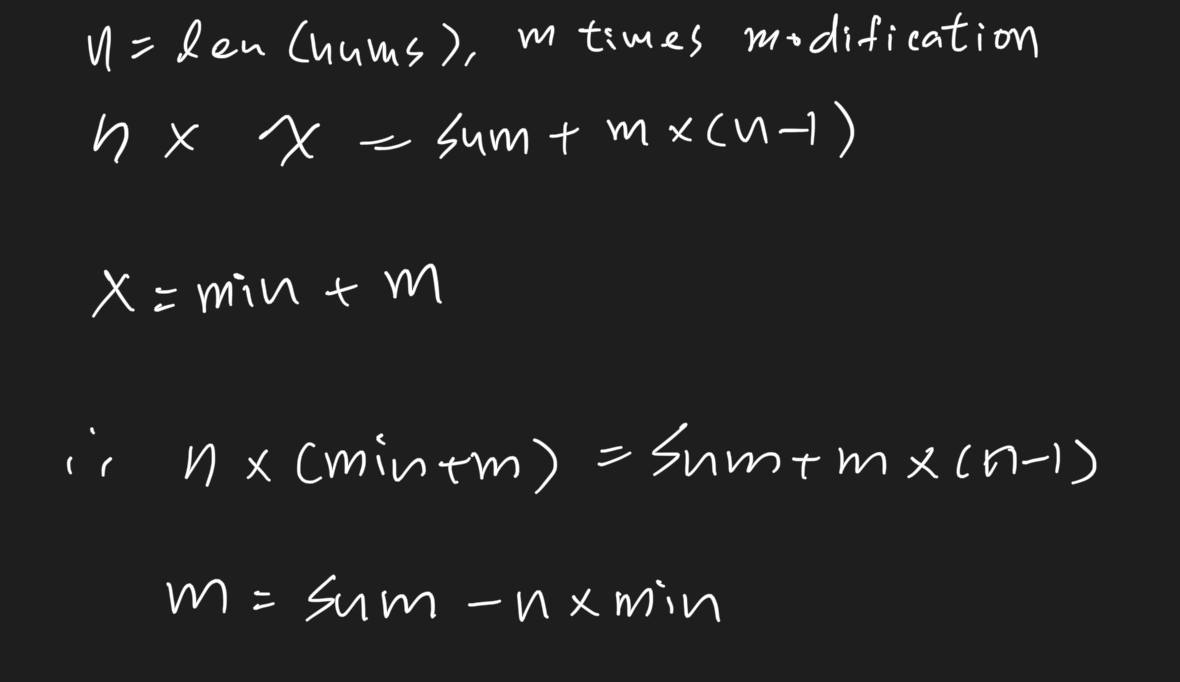 n = len (nums), m times modification
n × x = sum + m × (n-1)
x = min + m
∴ n × (min+m) = sum + m × (n-1)
m = sum - n × min